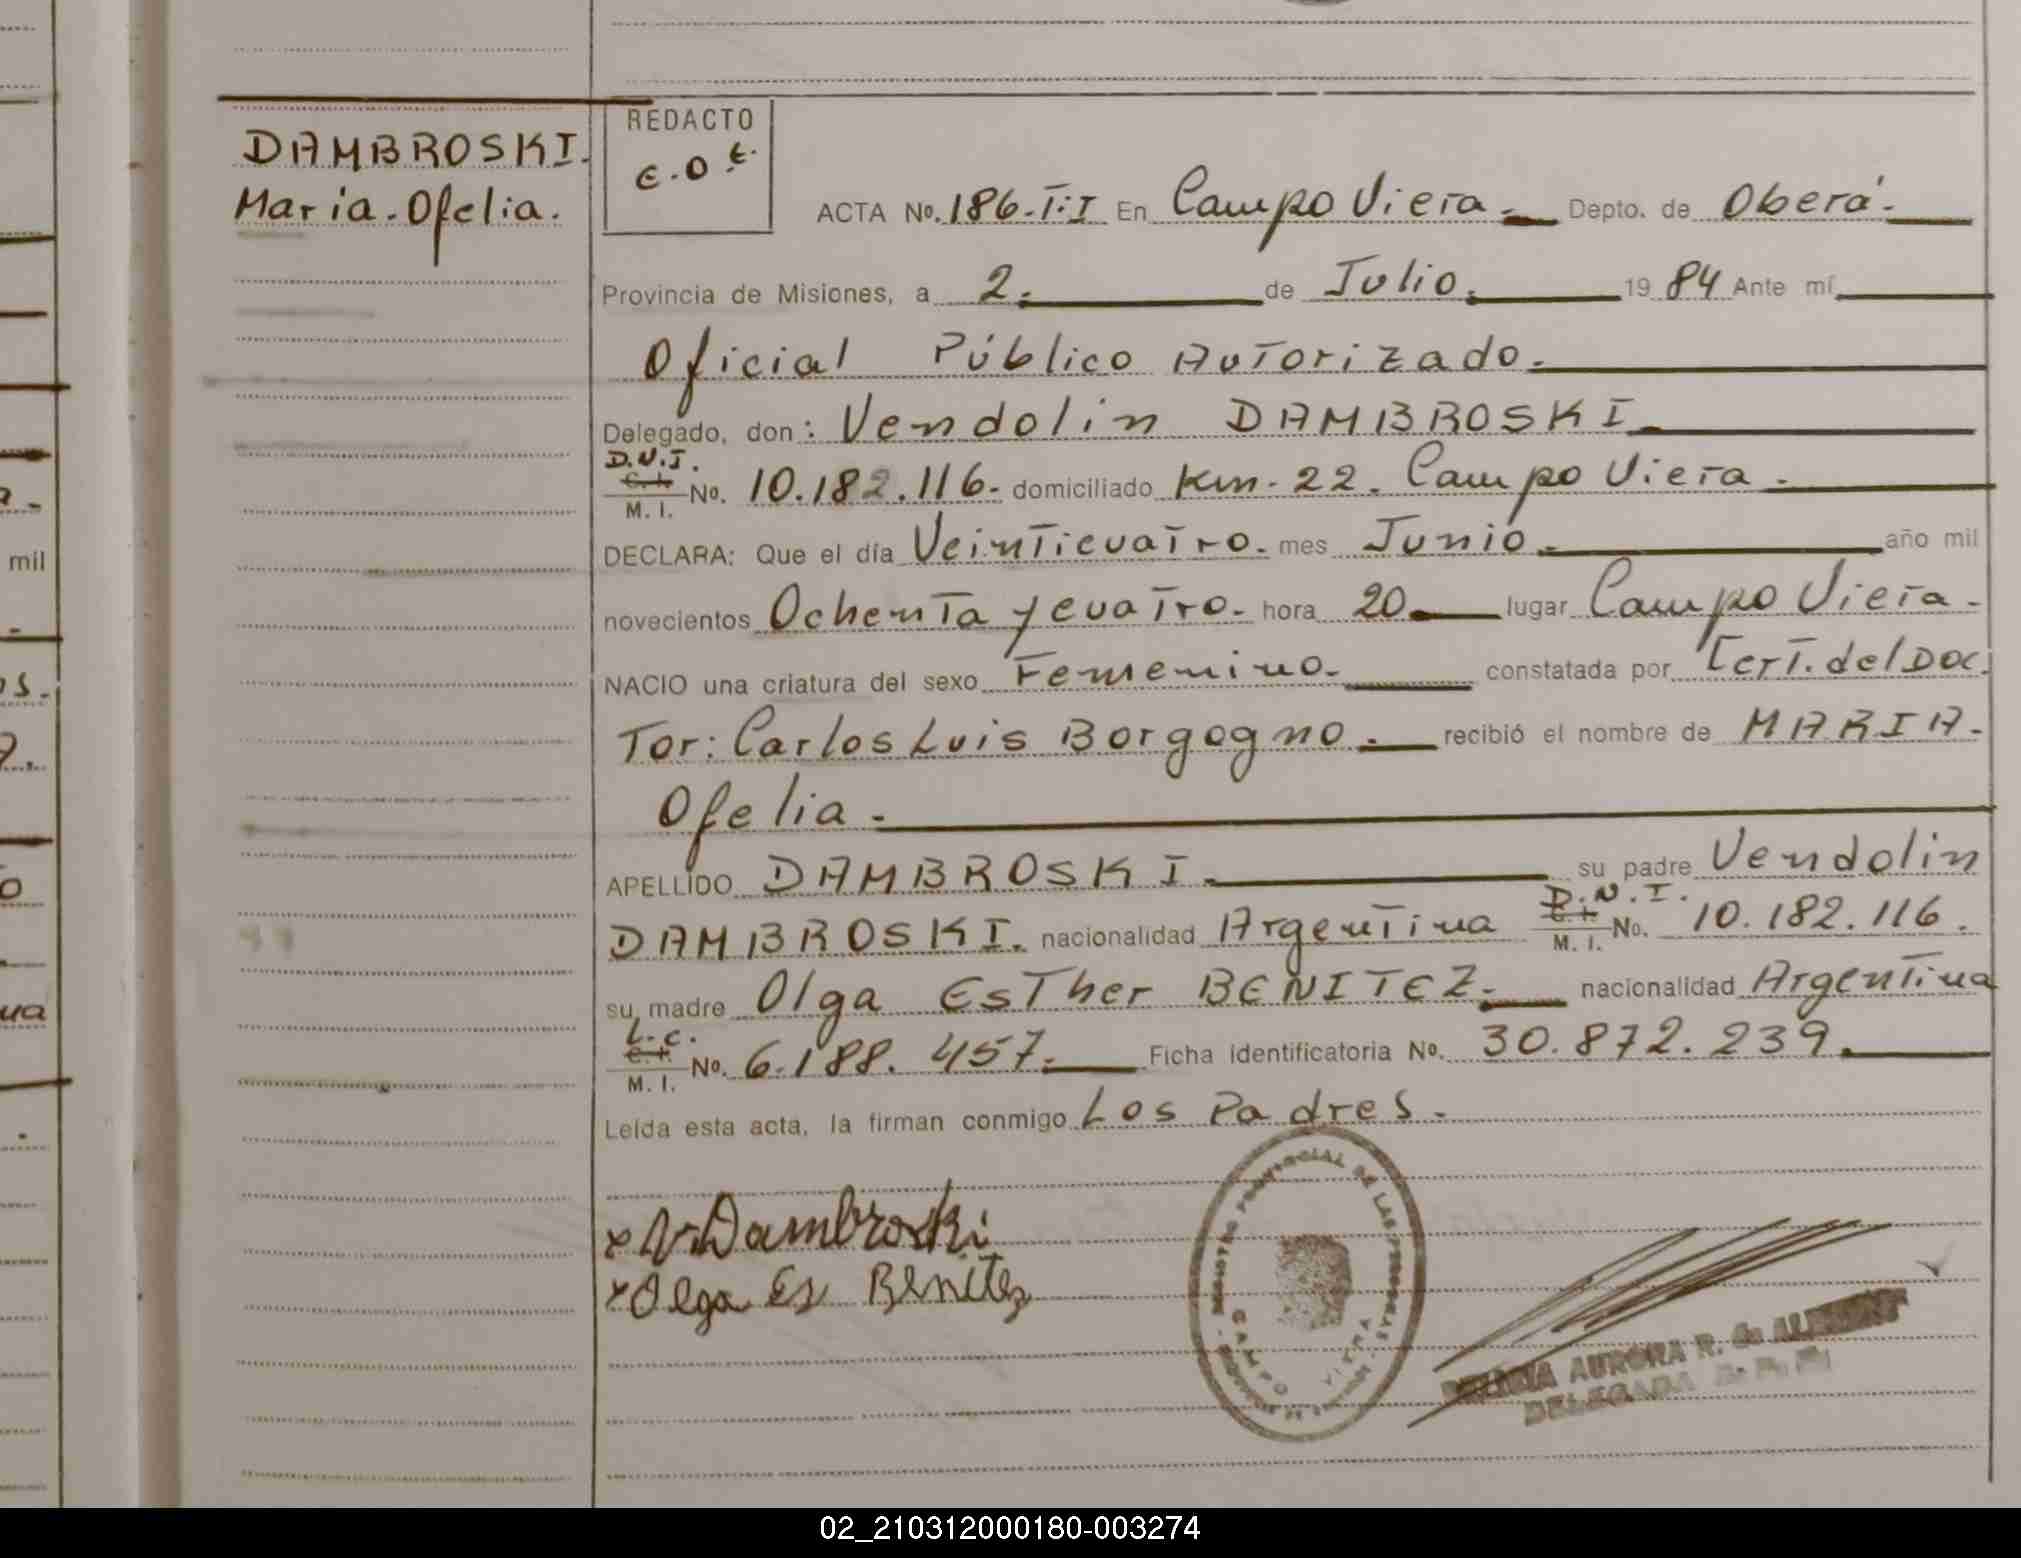 DAMBROSKI.
Maria. Ofelia.
REDACTO
ACTA No. 186. T:I En Campo Viera.- Depto. de Oberá.
Provincia de Misiones, a 2. de Julio. 19 84 Ante mí
Oficial Público Autorizado.
Delegado, don: Vendolin DAMBROSKI.
D.N.I.
C. I.
M. I. No. 10.182.116. domiciliado Km. 22. Campo Viera.
DECLARA: Que el día Veinticuatro. mes Junio. año mil
novecientos Ochenta y cuatro. hora 20 lugar Campo Viera.
NACIO una criatura del sexo Femenino. constatada por Cert. del Doc.
Tor: Carlos Luis Borgogno. recibió el nombre de MARIA.
Ofelia.
APELLIDO DAMBROSKI. su padre Vendolin
D.N.I.
DAMBROSKI. nacionalidad Argentina C. I. M. I. No. 10.182.116.
su madre Olga Esther BENITEZ. nacionalidad Argentina
L.C.
C. I.
M. I. No. 6.188.457. Ficha identificatoria No. 30.872.239.
Leída esta acta, la firman conmigo Los Padres.
x V. Dambroski
x Olga Es Benitez
REGISTRO PROVINCIAL DE LAS PERSONAS
CAMPO VIERA
AURORA R. de
DELEGADA
mil
02_210312000180-003274